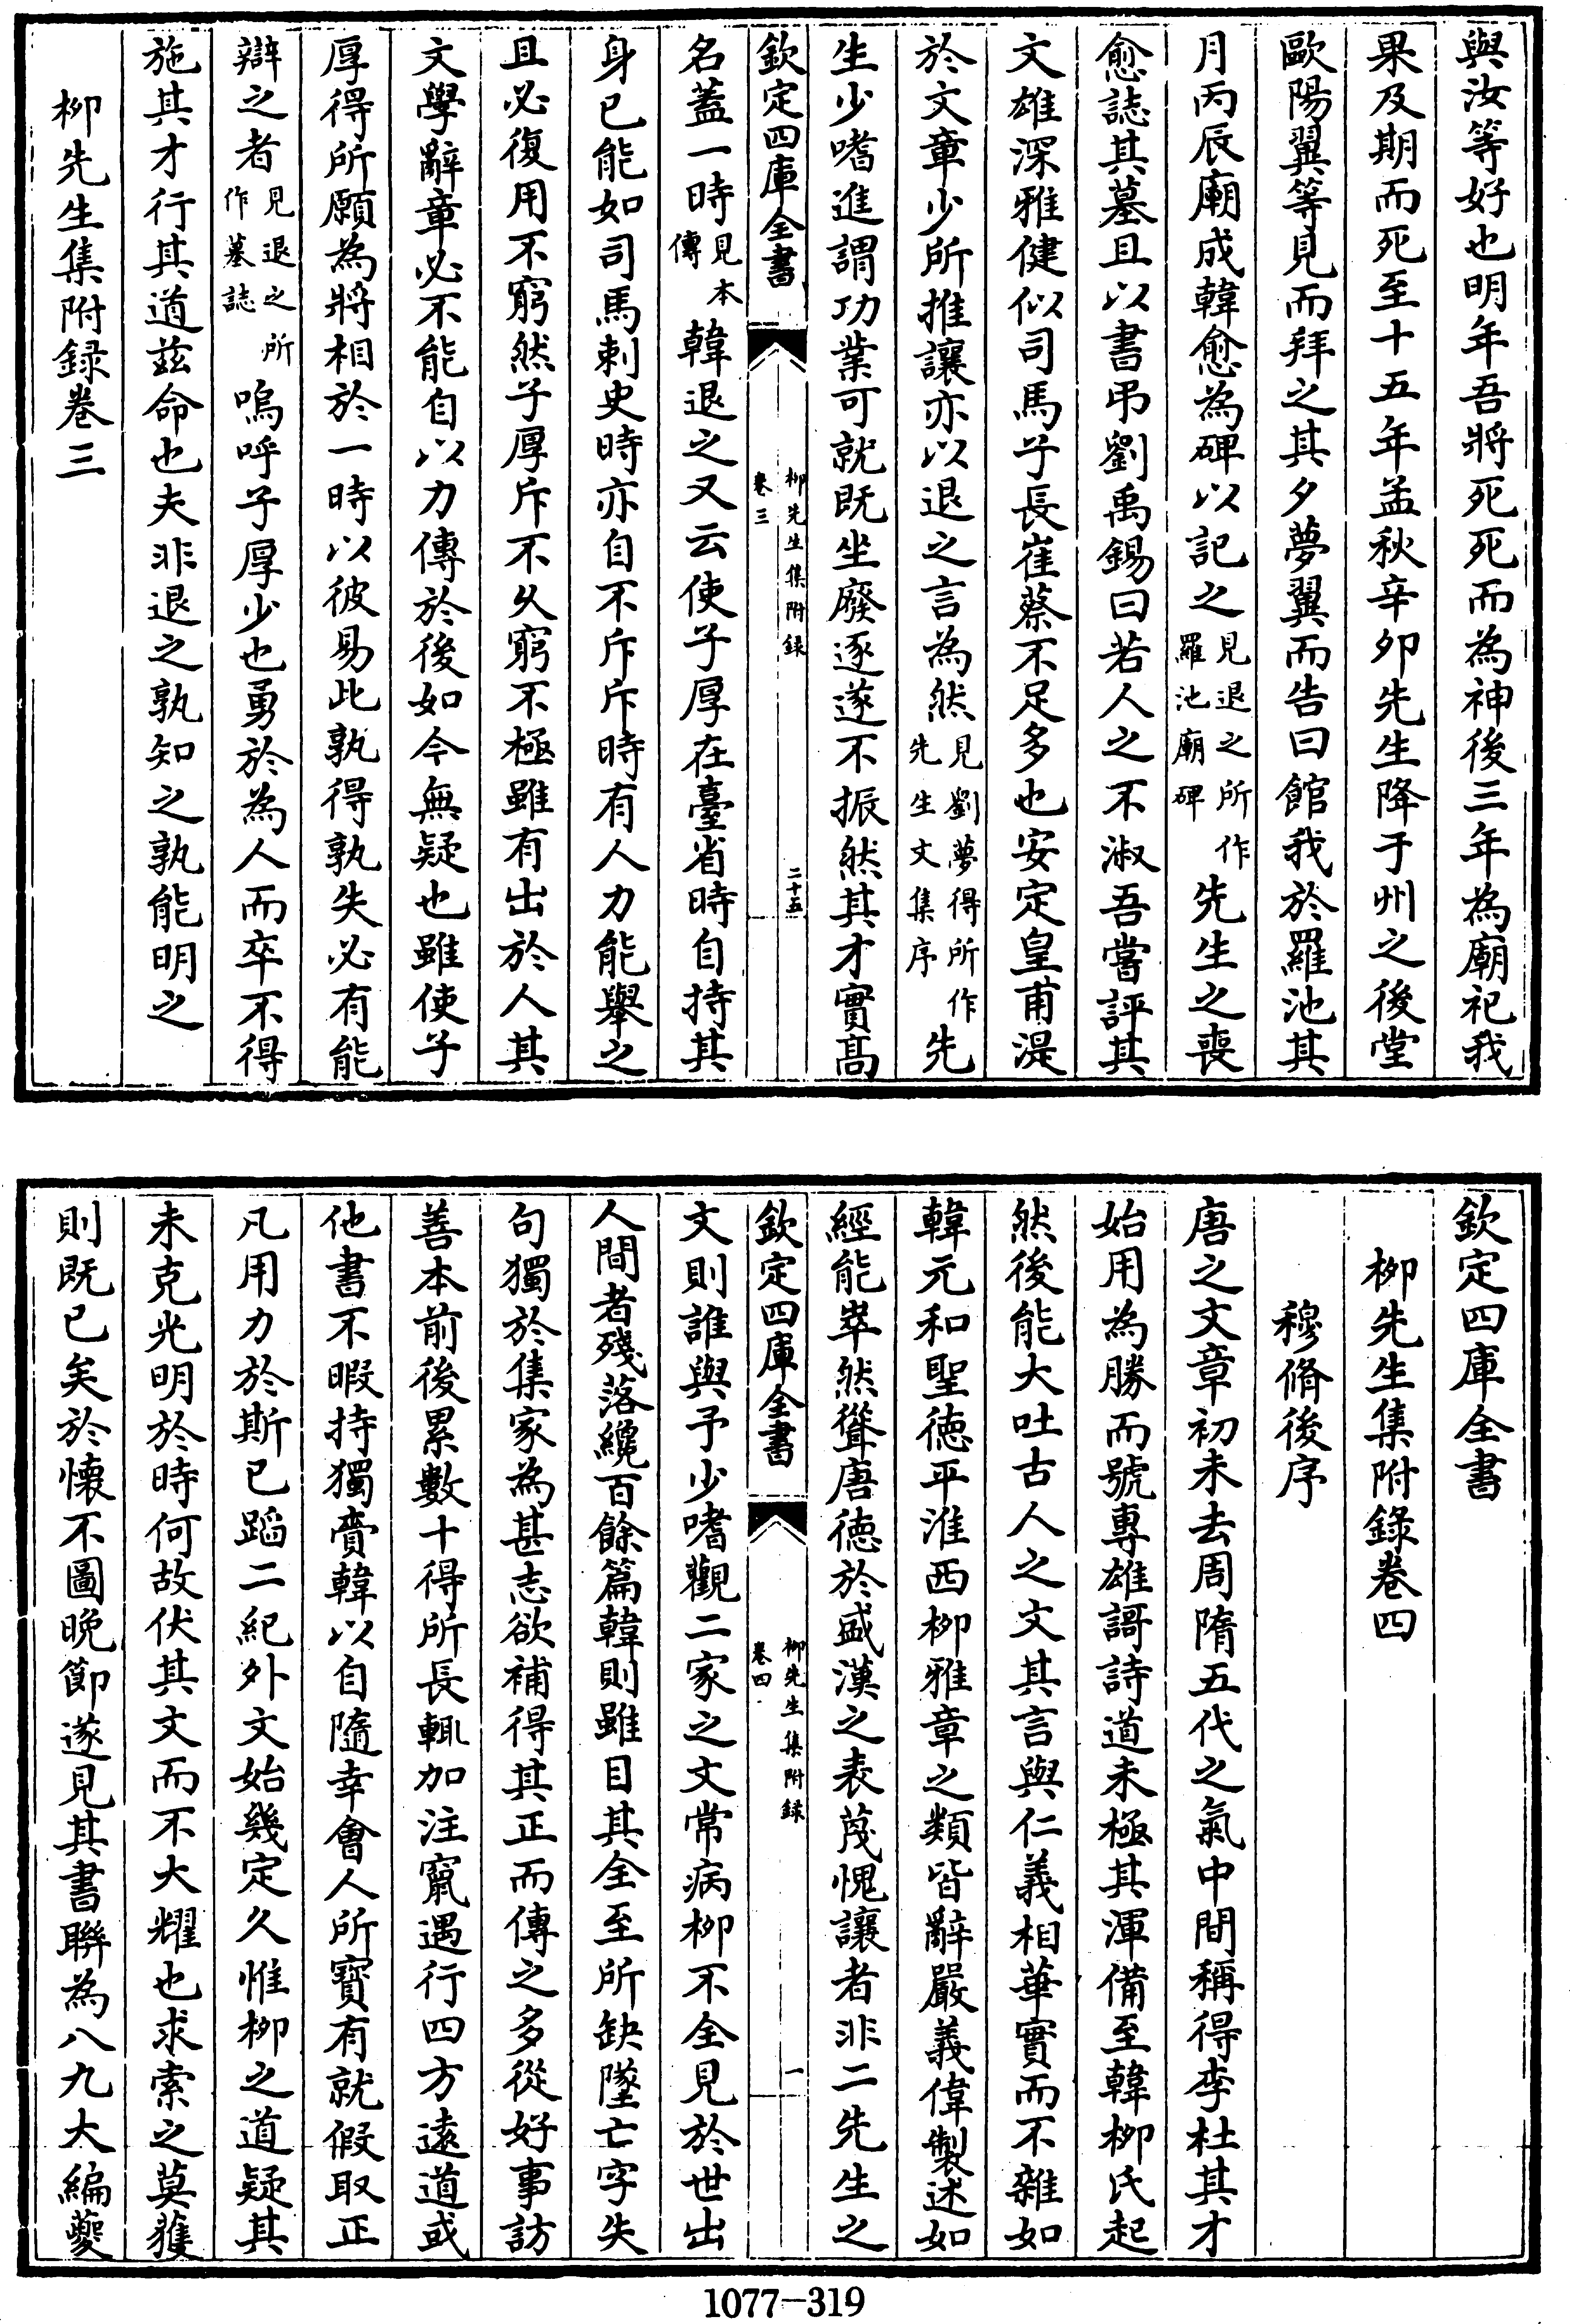 與汝等好也明年吾將死死而為神後三年為廟祀我
果及期而死至十五年孟秋辛夘先生降于州之後堂
歐陽翼等見而拜之其夕夢翼而告曰館我於羅池其
月丙辰廟成韓愈為碑以記之見退之所作羅池廟碑先生之喪
愈誌其墓且以書弔劉禹錫曰若人之不淑吾嘗評其
文雄深雅健似司馬子長崔蔡不足多也安定皇甫湜
於文章少所推讓亦以退之言為然見劉夢得所作先生文集序先
生少嗜進謂功業可就既坐廢逐遂不振然其才實髙
欽定四庫全書
柳先生集附録
卷三
二十五
名蓋一時見本傳韓退之又云使子厚在臺省時自持其
身已能如司馬刺史時亦自不斥斥時有人力能舉之
且必復用不窮然子厚斥不久窮不極雖有出於人其
文學辭章必不能自以力傳於後如今無疑也雖使子
厚得所願為將相於一時以彼易此孰得孰失必有能
辯之者見退之所作墓誌嗚呼子厚少也勇於為人而卒不得
施其才行其道兹命也夫非退之孰知之孰能明之
柳先生集附録卷三
欽定四庫全書
柳先生集附錄卷四
穆脩後序
唐之文章初未去周隋五代之氣中間稱得李杜其才
始用為勝而號專雄謌詩道未極其渾備至韓柳氏起
然後能大吐古人之文其言與仁義相華實而不雜如
韓元和聖徳平淮西柳雅章之類皆辭嚴義偉製述如
經能崒然聳唐徳於盛漢之表蔑愧讓者非二先生之
欽定四庫全書
柳先生集附録
卷四
一
文則誰與予少嗜觀二家之文常病柳不全見於世出
人間者殘落纔百餘篇韓則雖目其全至所缺墜亡字失
句獨於集家為甚志欲補得其正而傳之多從好事訪
善本前後累數十得所長輒加注竄遇行四方遠道或
他書不暇持獨齎韓以自隨幸會人所寳有就假取正
凡用力於斯已蹈二紀外文始幾定久惟柳之道疑其
未克光明於時何故伏其文而不大耀也求索之莫獲
則既已矣於懷不圖晚節遂見其書聯為八九大編夔
1077—319